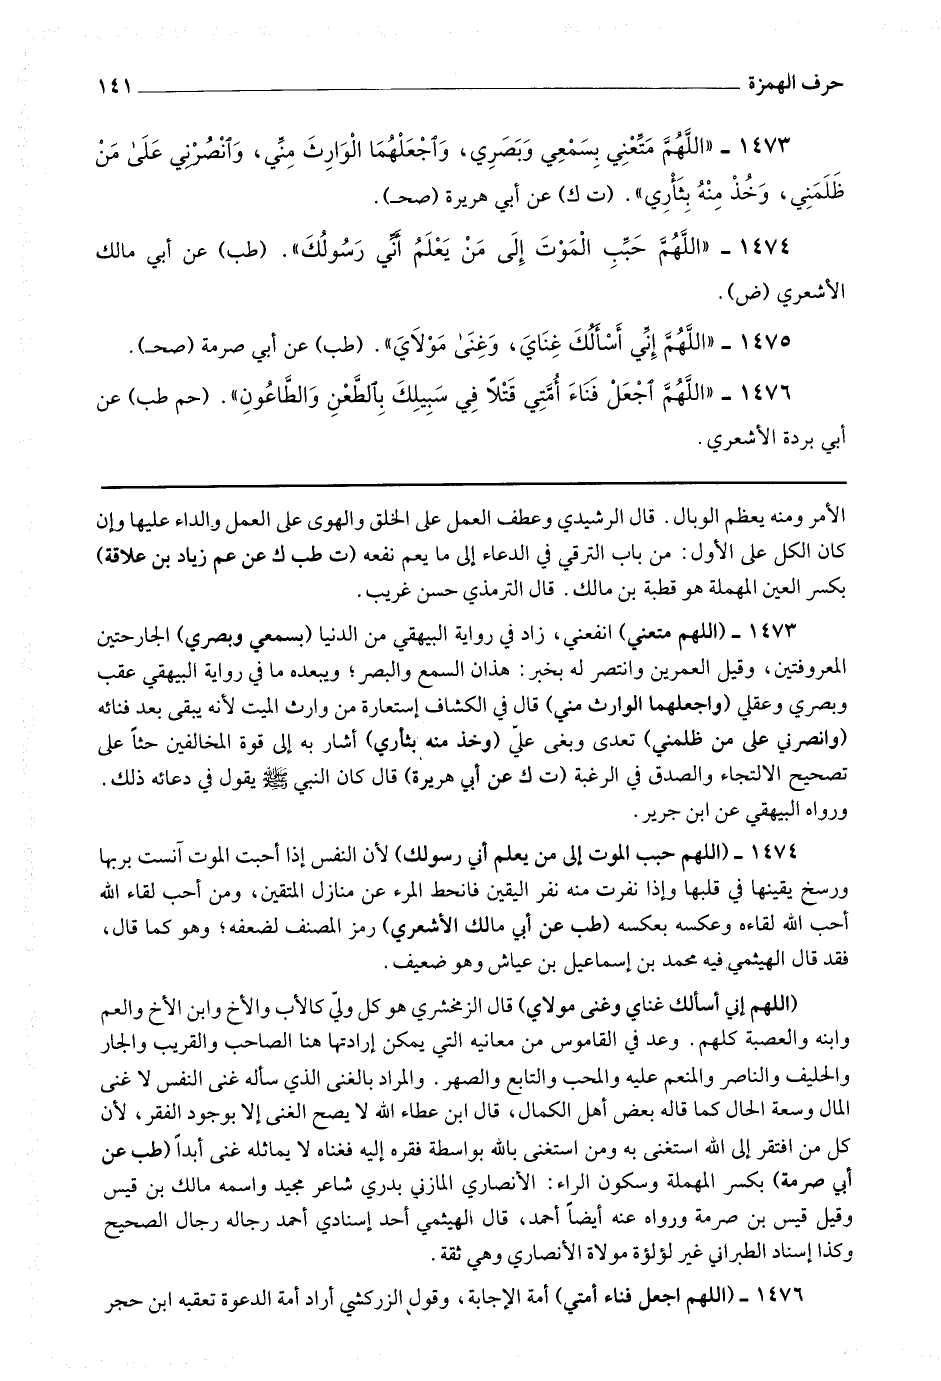 حرف الهمزة ١٤١
١٤٧٣ ـ «اللَّهُمَّ مَتِّعْنِي بِسَمْعِي وَبَصَرِي، وَٱجْعَلْهُمَا الْوَارِثَ مِنِّي، وَٱنْصُرْنِي عَلَىٰ مَنْ
ظَلَمَنِي، وَخُذْ مِنْهُ بِثَأْرِي». (ت ك) عن أبي هريرة (صحـ).
١٤٧٤ ـ «اللَّهُمَّ حَبِّبِ الْمَوْتَ إِلَى مَنْ يَعْلَمُ أَنِّي رَسُولُكَ». (طب) عن أبي مالك
الأشعري (ض).
١٤٧٥ ـ «اللَّهُمَّ إِنِّي أَسْأَلُكَ غِنَايَ، وَغِنَىٰ مَوْلَايَ». (طب) عن أبي صرمة (صحـ).
١٤٧٦ ـ «اللَّهُمَّ ٱجْعَلْ فَنَاءَ أُمَّتِي قَتْلاً فِي سَبِيلِكَ بِٱلطَّعْنِ وَالطَّاعُونِ». (حم طب) عن
أبي بردة الأشعري.
الأمر ومنه يعظم الوبال. قال الرشيدي وعطف العمل على الخلق والهوى على العمل والداء عليها وإن
كان الكل على الأول: من باب الترقي في الدعاء إلى ما يعم نفعه (ت طب ك عن عم زياد بن علاقة)
بكسر العين المهملة هو قطبة بن مالك. قال الترمذي حسن غريب.
١٤٧٣ ـ (اللهم متعني) انفعني، زاد في رواية البيهقي من الدنيا (بسمعي وبصري) الجارحتين
المعروفتين، وقيل العمرين وانتصر له بخبر: هذان السمع والبصر؛ ويبعده ما في رواية البيهقي عقب
وبصري وعقلي (واجعلهما الوارث مني) قال في الكشاف إستعارة من وارث الميت لأنه يبقى بعد فنائه
(وانصرني على من ظلمني) تعدى وبغى عليّ (وخذ منه بثأري) أشار به إلى قوة المخالفين حثاً على
تصحيح الالتجاء والصدق في الرغبة (ت ك عن أبي هريرة) قال كان النبي ﷺ يقول في دعائه ذلك.
ورواه البيهقي عن ابن جرير.
١٤٧٤ ـ (اللهم حبب الموت إلى من يعلم أني رسولك) لأن النفس إذا أحبت الموت آنست بربها
ورسخ يقينها في قلبها وإذا نفرت منه نفر اليقين فانحط المرء عن منازل المتقين، ومن أحب لقاء الله
أحب الله لقاءه وعكسه بعكسه (طب عن أبي مالك الأشعري) رمز المصنف لضعفه؛ وهو كما قال،
فقد قال الهيثمي فيه محمد بن إسماعيل بن عياش وهو ضعيف.
(اللهم إني أسألك غناي وغنى مولاي) قال الزمخشري هو كل وليّ كالأب والأخ وابن الأخ والعم
وابنه والعصبة كلهم. وعد في القاموس من معانيه التي يمكن إرادتها هنا الصاحب والقريب والجار
والحليف والناصر والمنعم عليه والمحب والتابع والصهر. والمراد بالغنى الذي سأله غنى النفس لا غنى
المال وسعة الحال كما قاله بعض أهل الكمال، قال ابن عطاء الله لا يصح الغنى إلا بوجود الفقر، لأن
كل من افتقر إلى الله استغنى به ومن استغنى بالله بواسطة فقره إليه فغناه لا يماثله غنى أبداً (طب عن
أبي صرمة) بكسر المهملة وسكون الراء: الأنصاري المازني بدري شاعر مجيد واسمه مالك بن قيس
وقيل قيس بن صرمة ورواه عنه أيضاً أحمد، قال الهيثمي أحد إسنادي أحمد رجاله رجال الصحيح
وكذا إسناد الطبراني غير لؤلؤة مولاة الأنصاري وهي ثقة.
١٤٧٦ ـ (اللهم اجعل فناء أمتي) أمة الإجابة، وقول الزركشي أراد أمة الدعوة تعقبه ابن حجر